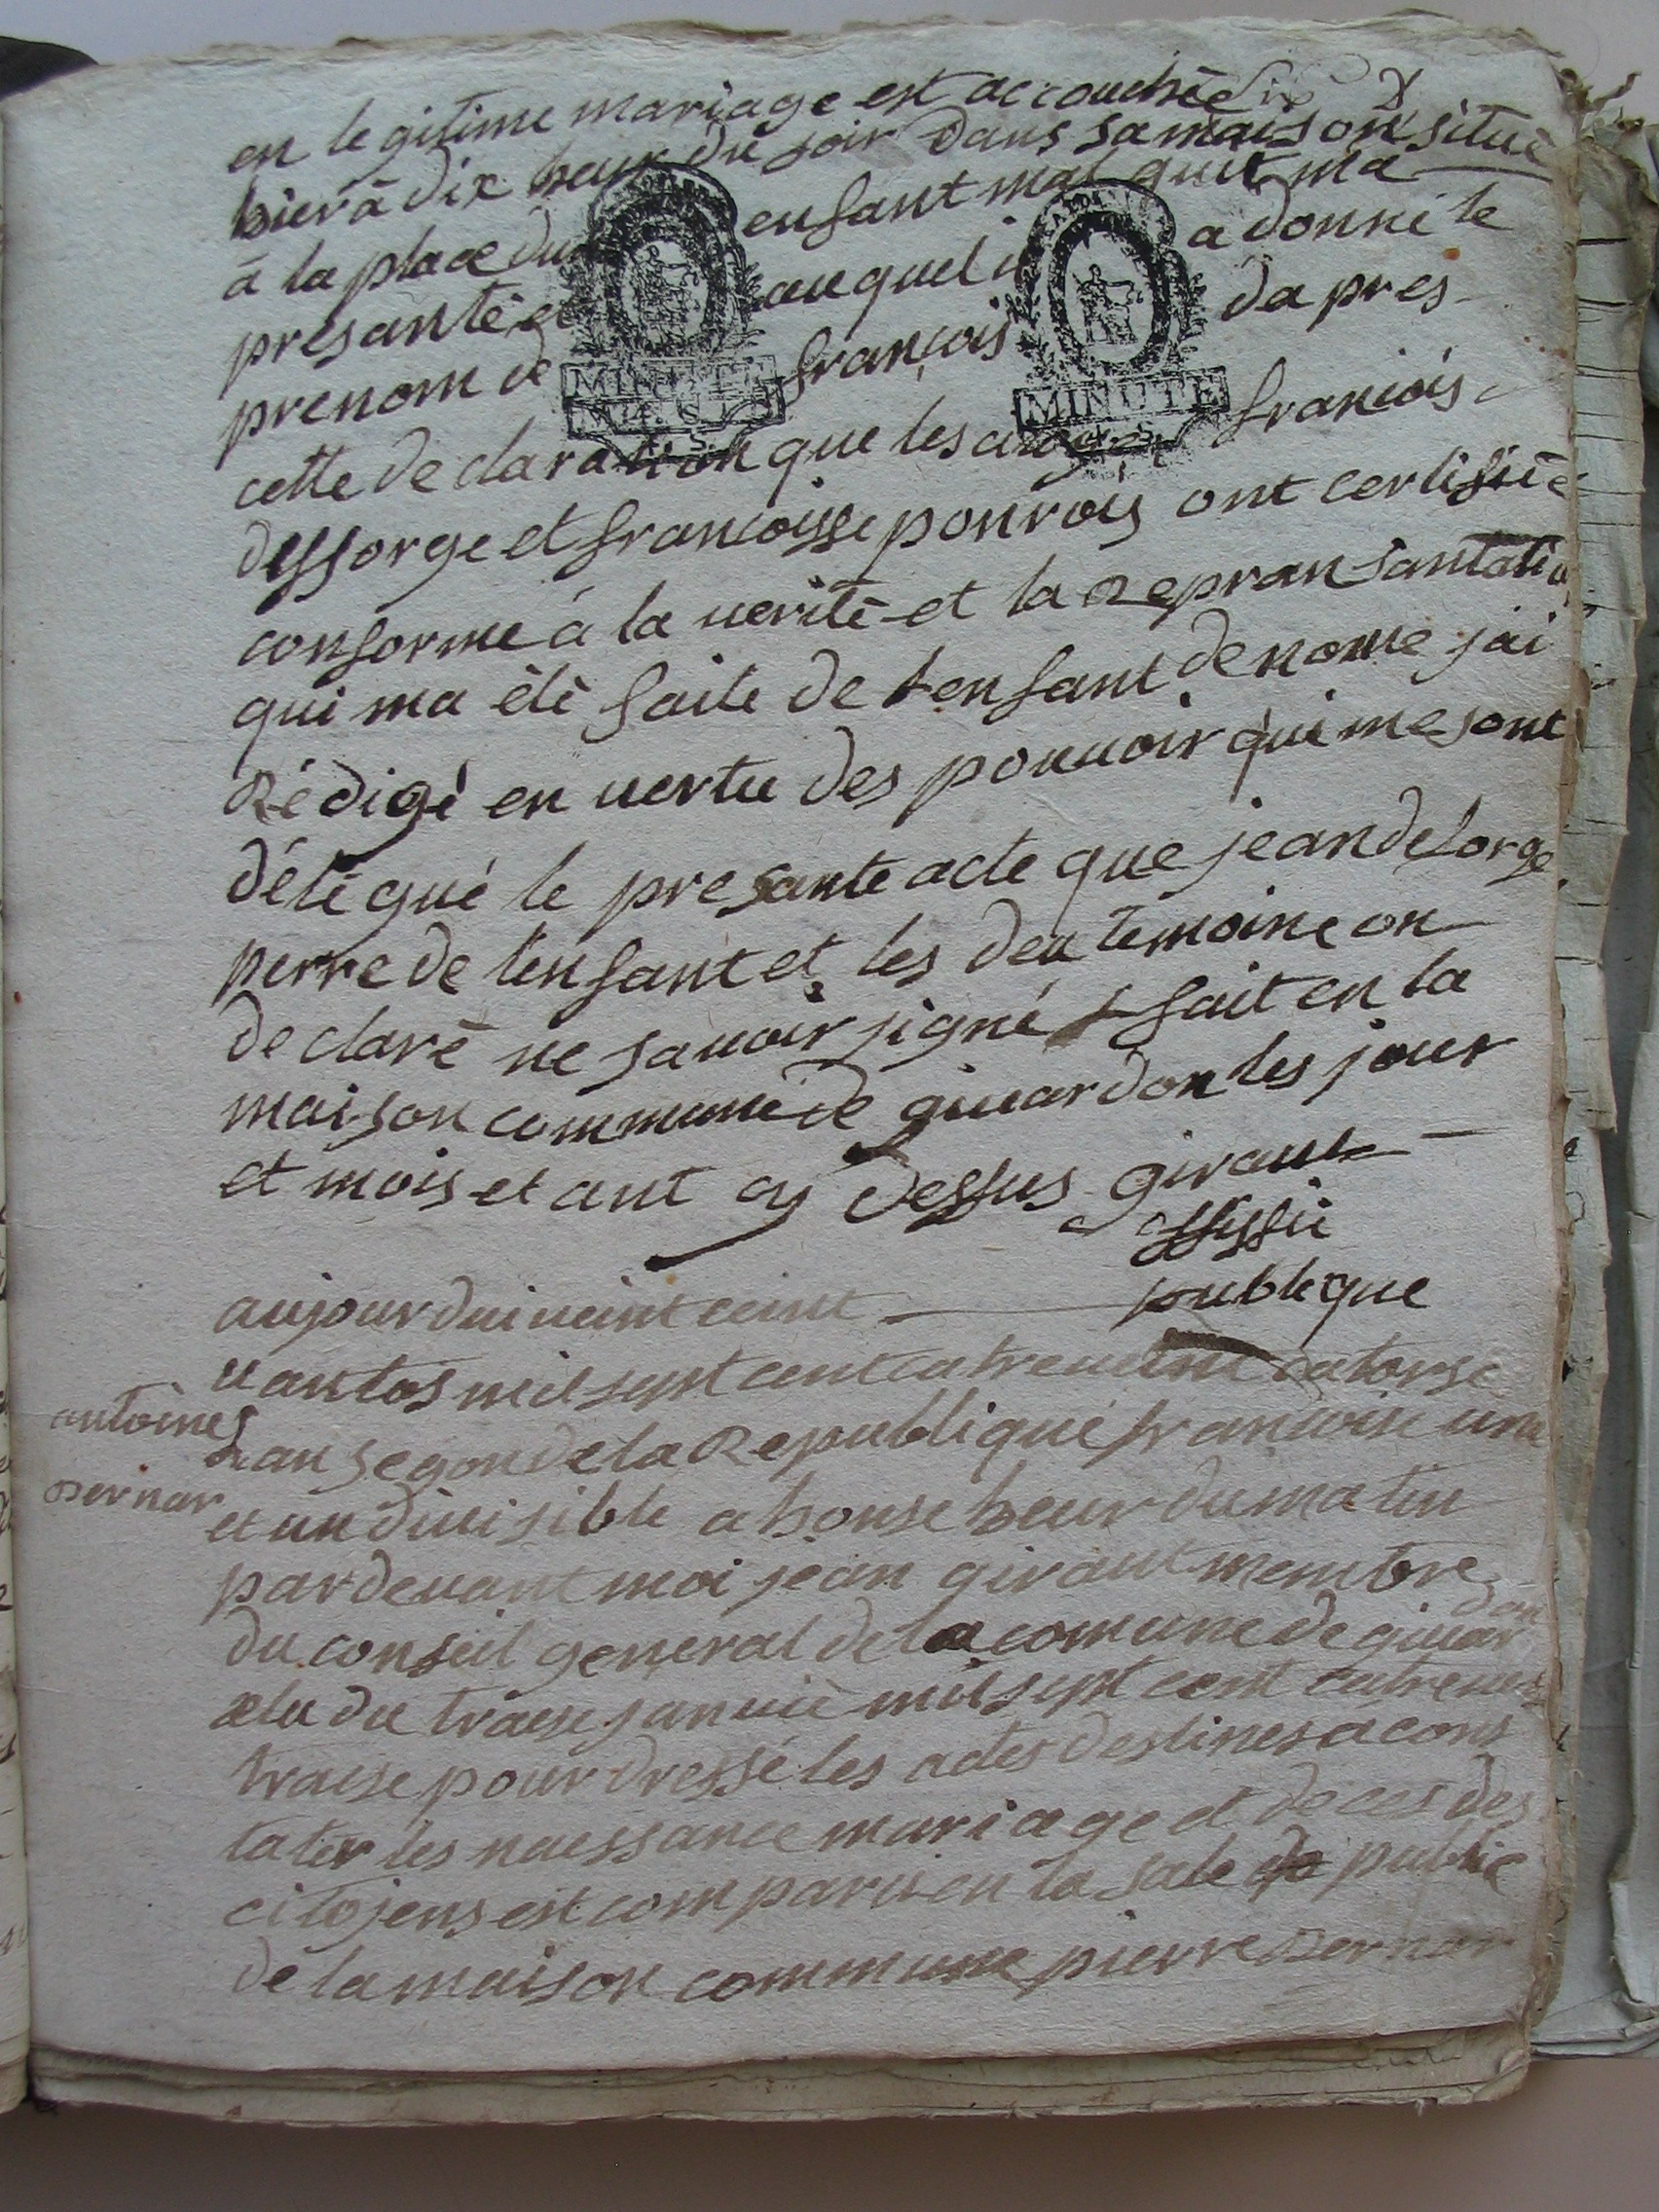 en legitime mariage est accouchée
hier à dix heur du soir dans sa maison situè
à la place du enfant mal quil ma
presanté et auquel il a donné le
prenom de françois da pres
cette declaration que les françois
desforge et francoisse ponrois ont certifiiè
conforme à la verité et la Repransantatio
qui ma été faite de lenfant denome jai
Rédigé en vertu des pouvoir qui me sont
délégué le presante acte que jean delorge
perre de lenfant et les deu temoine on
declaré ne savoir signé fait en la
maison commune de givardon les jour
et mois et ant cy dessus giraut
offissié
publique
aujourdui veint ceint
vantos mil sept cent catreveint catorse
antoines
lan segon de la Republique francoise une
Bernar
et undivisible a honse heur du matin
pardevant moi jean giraut membre
du conseil general de la comune de givardon
elu du traese janvié mil sept cent catreveint
traese pour dressé les actes destines a cons
tater les naessance mariage et deces des
citojens est comparu en la sale public
de la maison commune pierre Bernar
MINUTE
MINUTE